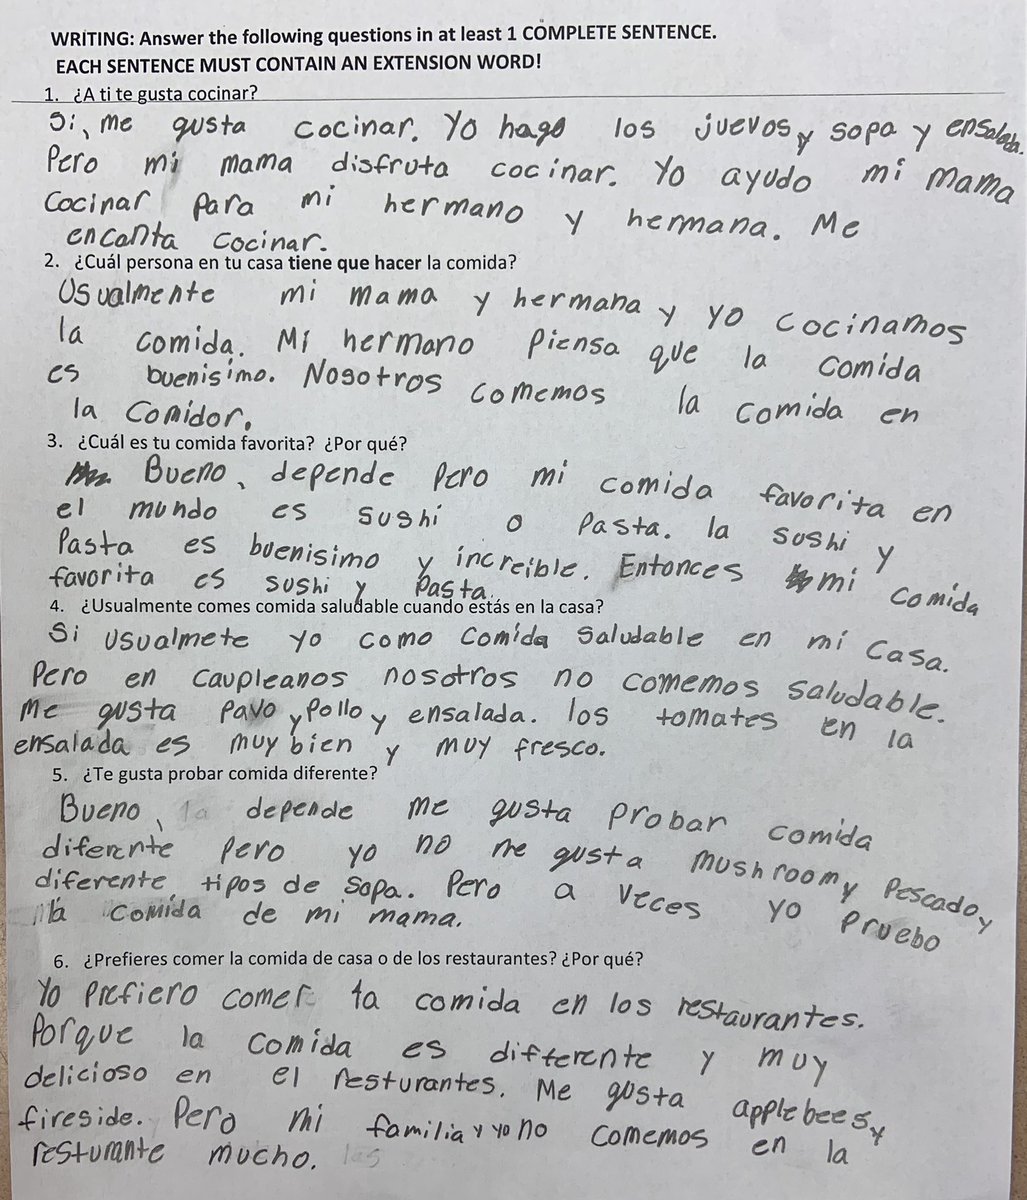 WRITING: Answer the following questions in at least 1 COMPLETE SENTENCE.
EACH SENTENCE MUST CONTAIN AN EXTENSION WORD!
1. ¿A ti te gusta cocinar?
Si, me gusta cocinar. Yo hago los juevos y sopa y ensalada.
Pero mi mama disfruta cocinar. Yo ayudo mi mama
cocinar para mi hermano y hermana. Me
encanta cocinar.
2. ¿Cuál persona en tu casa tiene que hacer la comida?
Usualmente mi mama y hermana y yo cocinamos
la comida. Mi hermano piensa que la comida
es buenisimo. Nosotros comemos la comida en
la comidor.
3. ¿Cuál es tu comida favorita? ¿Por qué?
Bueno, depende pero mi comida favorita en
el mundo es sushi o pasta. la sushi y
Pasta es buenisimo y increible. Entonces mi comida
favorita es sushi y pasta.
4. ¿Usualmente comes comida saludable cuando estás en la casa?
Si usualmete yo como comida saludable en mi casa.
Pero en caupleanos nosotros no comemos saludable.
Me gusta pavo y pollo y ensalada. los tomates en la
ensalada es muy bien y muy fresco.
5. ¿Te gusta probar comida diferente?
Bueno, la depende me gusta probar comida
diferente pero yo no me gusta mushroom y pescado y
diferente tipos de sopa. Pero a veces yo pruebo
la comida de mi mama.
6. ¿Prefieres comer la comida de casa o de los restaurantes? ¿Por qué?
Yo prefiero comer la comida en los restaurantes.
Porque la comida es differente y muy
delicioso en el resturantes. Me gusta applebees y
fireside. Pero mi familia y yo no comemos en la
resturante mucho. las